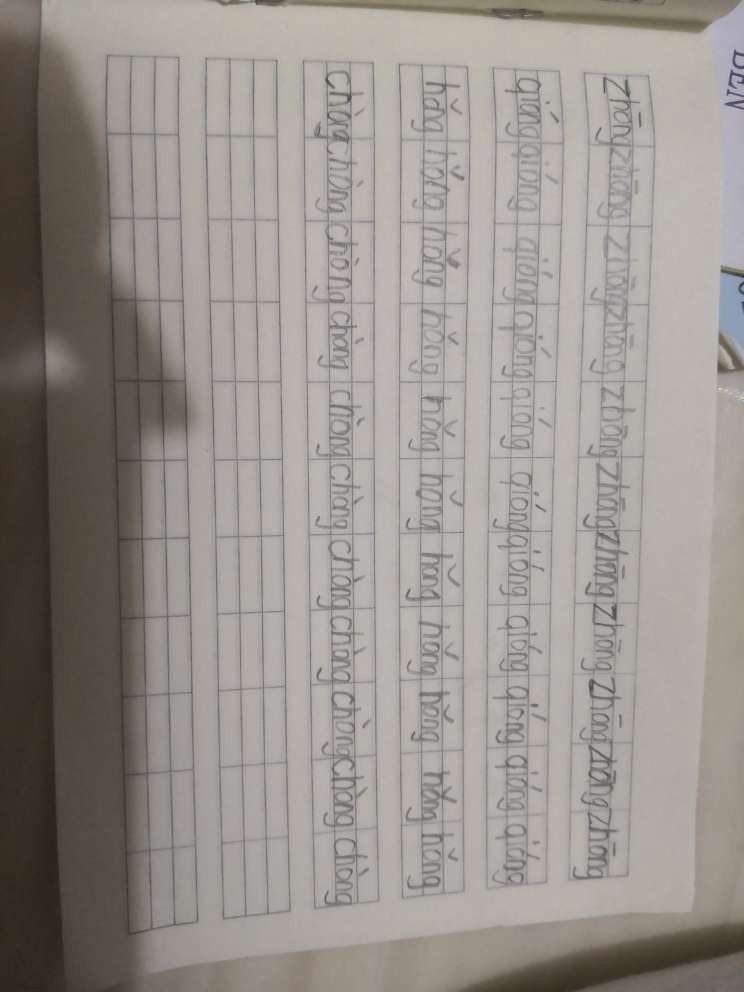 zhōng zhōng zhōng zhōng zhōng zhōng zhōng zhōng zhōng zhōng zhōng
qióng qióng qióng qióng qióng qióng qióng qióng qióng qióng qióng
hǒng hǒng hǒng hǒng hǒng hǒng hǒng hǒng hǒng hǒng hǒng
chòng chòng chòng chòng chòng chòng chòng chòng chòng chòng chòng
BEN